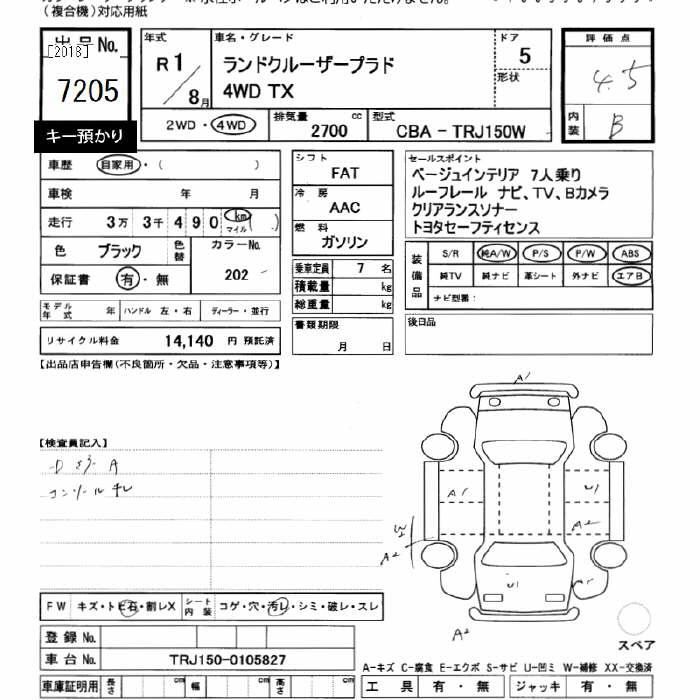 （複合機）対応用紙
出品No.
[2018]
7205
キー預かり
年式
R1／8月
車名・グレード
ランドクルーザープラド
4WD TX
ドア
5
形状
評価点
4.5
内装
B
2WD・4WD
排気量
2700 cc
型式
CBA－TRJ150W
車歴 自家用・（ ）
車検 年 月
走行 3万 3千 4 9 0 km マイル（ ）
色 ブラック 色替 カラーNo.
202
保証書 有・無
モデル年式 年 ハンドル 左・右 ディーラー・並行
リサイクル料金 14,140 円 預託済
シフト
FAT
冷房
AAC
燃料
ガソリン
乗車定員 7 名
積載量 kg
総重量 kg
書類期限
月 日
セールスポイント
ベージュインテリア 7人乗り
ルーフレール ナビ、TV、Bカメラ
クリアランスソナー
トヨタセーフティセンス
装備品
S/R 純A/W P/S P/W ABS
純TV 純ナビ 革シート 外ナビ エアB
ナビ型番：
後日品
【出品店申告欄（不良箇所・欠品・注意事項等）】
【検査員記入】
コンソールキレ
A1
A1
U1
A2
W2
A2
U1
A2
FW キズ・トビ石・割レX シート内装 コゲ・穴・汚レ・シミ・破レ・スレ
登録No.
車台No. TRJ150-0105827
車庫証明用 長さ cm 幅 cm 高さ cm
スペア
A-キズ C-腐食 E-エクボ S-サビ U-凹ミ W-補修 XX-交換済
工具 有・無 ジャッキ 有・無